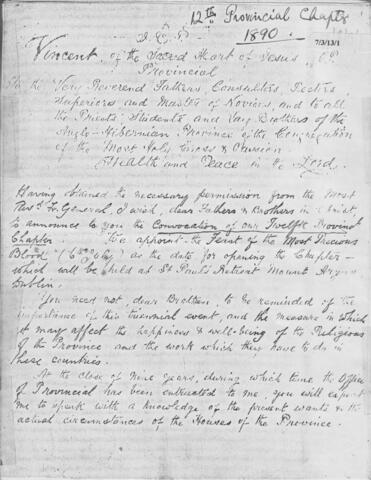 12th Provincial Chapter
1890.
7/3/13/1
J. X. P.
Vincent, of the Sacred Heart of Jesus, C.P.
Provincial
To the Very Reverend Fathers, Consultors, Rectors,
Superiors and Master of Novices, and to all
the Priests, Students and Lay Brothers of the
Anglo-Hibernian Province of the Congregation
of the Most Holy Cross & Passion
Health and Peace in the Lord.
Having obtained the necessary permission from the Most
Revd. Fr. General, I wish dear Fathers & Brothers in Christ
to announce to you the Convocation of our Twelfth Provincial
Chapter. We appoint the Feast of the Most Precious
Blood as the date for opening the Chapter -
which will be held at St Paul's Retreat Mount Argus
Dublin.
You need not, dear Brethren, to be reminded of the
importance of this triennial event, and the measure in which
it may affect the happiness & well-being of the Religious
of the Province and the work which they have to do in
these countries.
At the close of nine years, during which time the Office
of Provincial has been entrusted to me, you will expect
me to speak with a knowledge of the present wants & the
actual circumstances of the Houses of the Province.